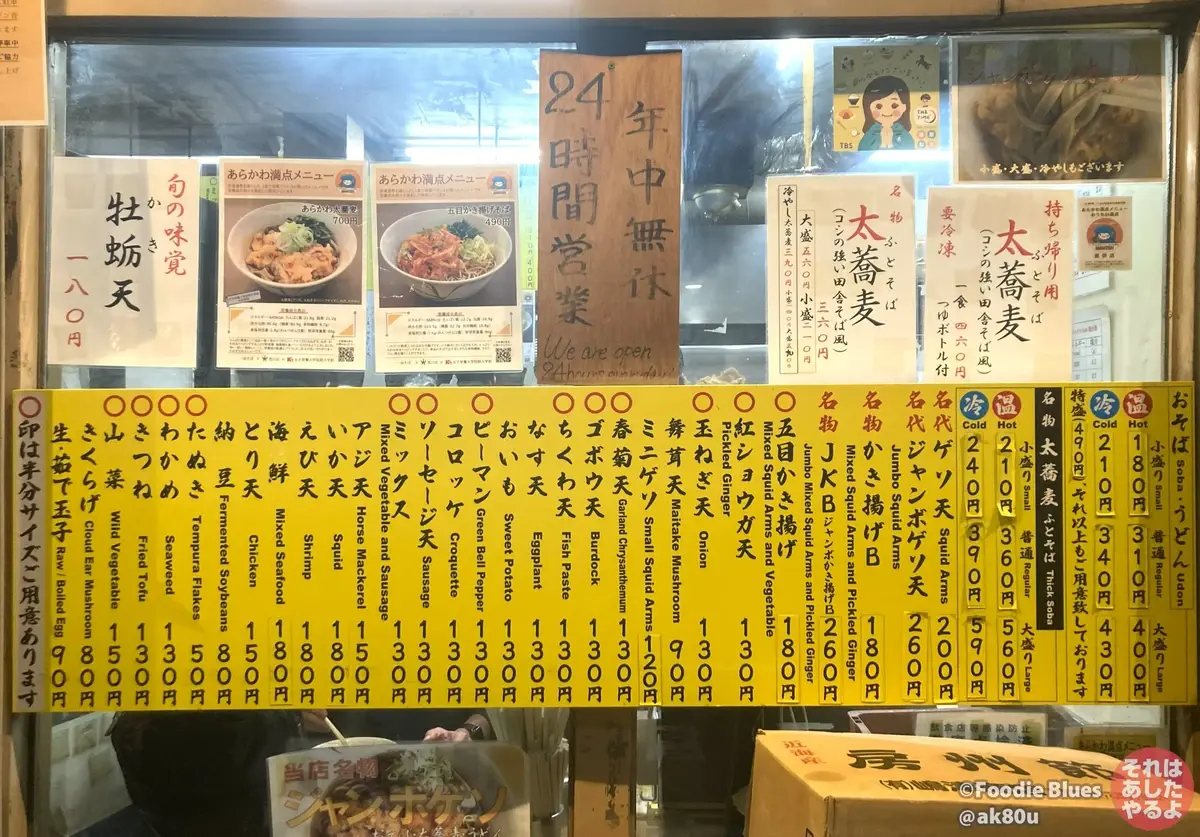 旬の味覚
牡蛎天
かき
一八〇円
あらかわ満点メニュー
700円
あらかわ満点メニュー
五目かき揚げそば
490円
年中無休
24時間営業
We are open
TBS
小盛・大盛・冷やしもございます
名物
太蕎麦
ふとそば
(コシの強い田舎そば風)
三六〇円
大盛五六〇円 小盛二一〇円
持ち帰り用
太蕎麦
ふとそば
(コシの強い田舎そば風)
要冷凍
一食 四六〇円
つゆボトル付
あらかわ満点メニュー
おそば Soba・うどん Udon
小盛り Small 普通 Regular 大盛り Large
温 Hot 180円 310円 400円
冷 Cold 210円 340円 430円
特盛(490円)それ以上もご用意致しております
名物 太蕎麦 ふとそば Thick Soba
小盛り Small 普通 Regular 大盛り Large
温 Hot 210円 360円 560円
冷 Cold 240円 390円 590円
名代 ゲソ天 Squid Arms 200円
名代 ジャンボゲソ天 Jumbo Squid Arms 260円
名物 かき揚げB Mixed Squid Arms and Pickled Ginger 180円
名物 JKB ジャンボかき揚げB Jumbo Mixed Squid Arms and Pickled Ginger 260円
〇 五目かき揚げ Mixed Squid Arms and Vegetable 180円
〇 紅ショウガ天 Pickled Ginger 130円
〇 玉ねぎ天 Onion 130円
舞茸天 Maitake Mushroom 90円
ミニゲソ Small Squid Arms 120円
〇 春菊天 Garland Chrysanthemum 130円
〇 ゴボウ天 Burdock 130円
〇 ちくわ天 Fish Paste 130円
なす天 Eggplant 130円
おいも Sweet Potato 130円
〇 ピーマン Green Bell Pepper 130円
コロッケ Croquette 130円
〇 ソーセージ天 Sausage 130円
〇 ミックス Mixed Vegetable and Sausage 130円
アジ天 Horse Mackerel 150円
いか天 Squid 180円
えび天 Shrimp 180円
海鮮 Mixed Seafood 180円
とり天 Chicken 150円
納豆 Fermented Soybeans 80円
〇 たぬき Tempura Flakes 50円
〇 わかめ Seaweed 130円
〇 きつね Fried Tofu 130円
〇 山菜 Wild Vegetable 150円
きくらげ Cloud Ear Mushroom 80円
生・茹で玉子 Raw / Boiled Egg 90円
〇印は半分サイズご用意あります
当店名物
ジャンボゲソ
近海産
房州
©Foodie Blues
@ak80u
それは
あした
やるよ